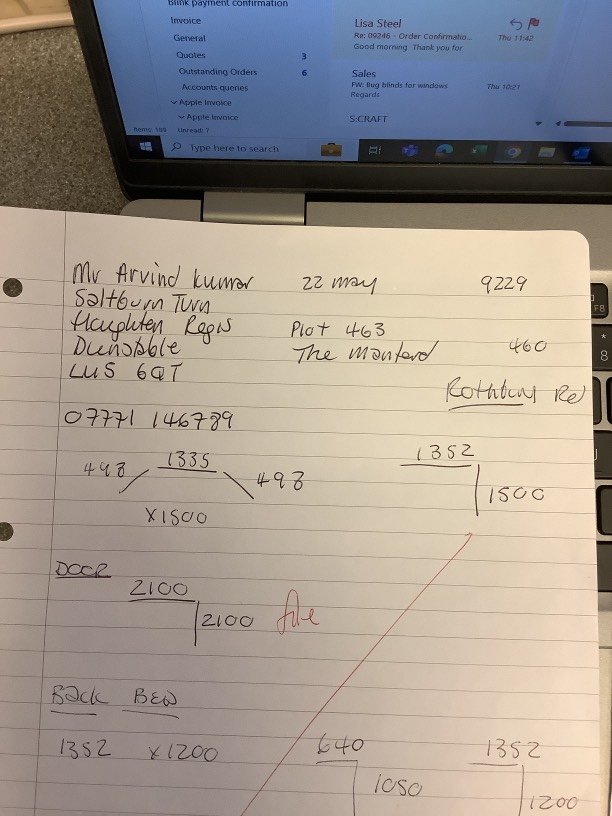 Blink payment confirmation
Invoice
General
Quotes 3
Outstanding Orders 6
Accounts queries
Apple Invoice
Apple Invoice
Items: 188 Unread: 7
Lisa Steel
Re: 09246 - Order Confirmatio... Thu 11:42
Good morning Thank you for
Sales
FW: Bug blinds for windows Thu 10:21
Regards
S:CRAFT
Type here to search
F8
*
8
Mr Arvind Kumar 22 may 9229
Saltburn Turn
Haughten Regis Plot 463
Dunstable The Manford 460
LU5 6QT
Rothbury Red
07771 146789
498 1335 498
x1500
1352
1500
DOOR
2100
2100 file
Back BED
1352 x1200
640
1050
1352
1200